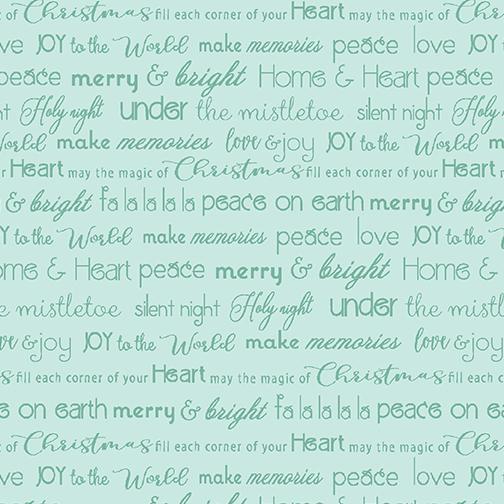 of Christmas fill each corner of your Heart may the magic of Chris
ve JOY to the World make memories peace love JOY to
peace merry & bright Home & Heart peace
t Holy night under the mistletoe silent night Holy
World make memories love & joy JOY to the World m
r Heart may the magic of Christmas fill each corner of your Heart m
& bright fa la la la la peace on earth merry & brig
Y to the World make memories peace love JOY to the
ome & Heart peace merry & bright Home &
e mistletoe silent night Holy night under the mist
ve & joy JOY to the World make memories love & joy
s fill each corner of your Heart may the magic of Christmas fill each c
e on earth merry & bright fa la la la la peace on ea
of Christmas fill each corner of your Heart may the magic of Chris
ve JOY to the World make memories peace love JOY to
peace merry & bright Home & Heart peace